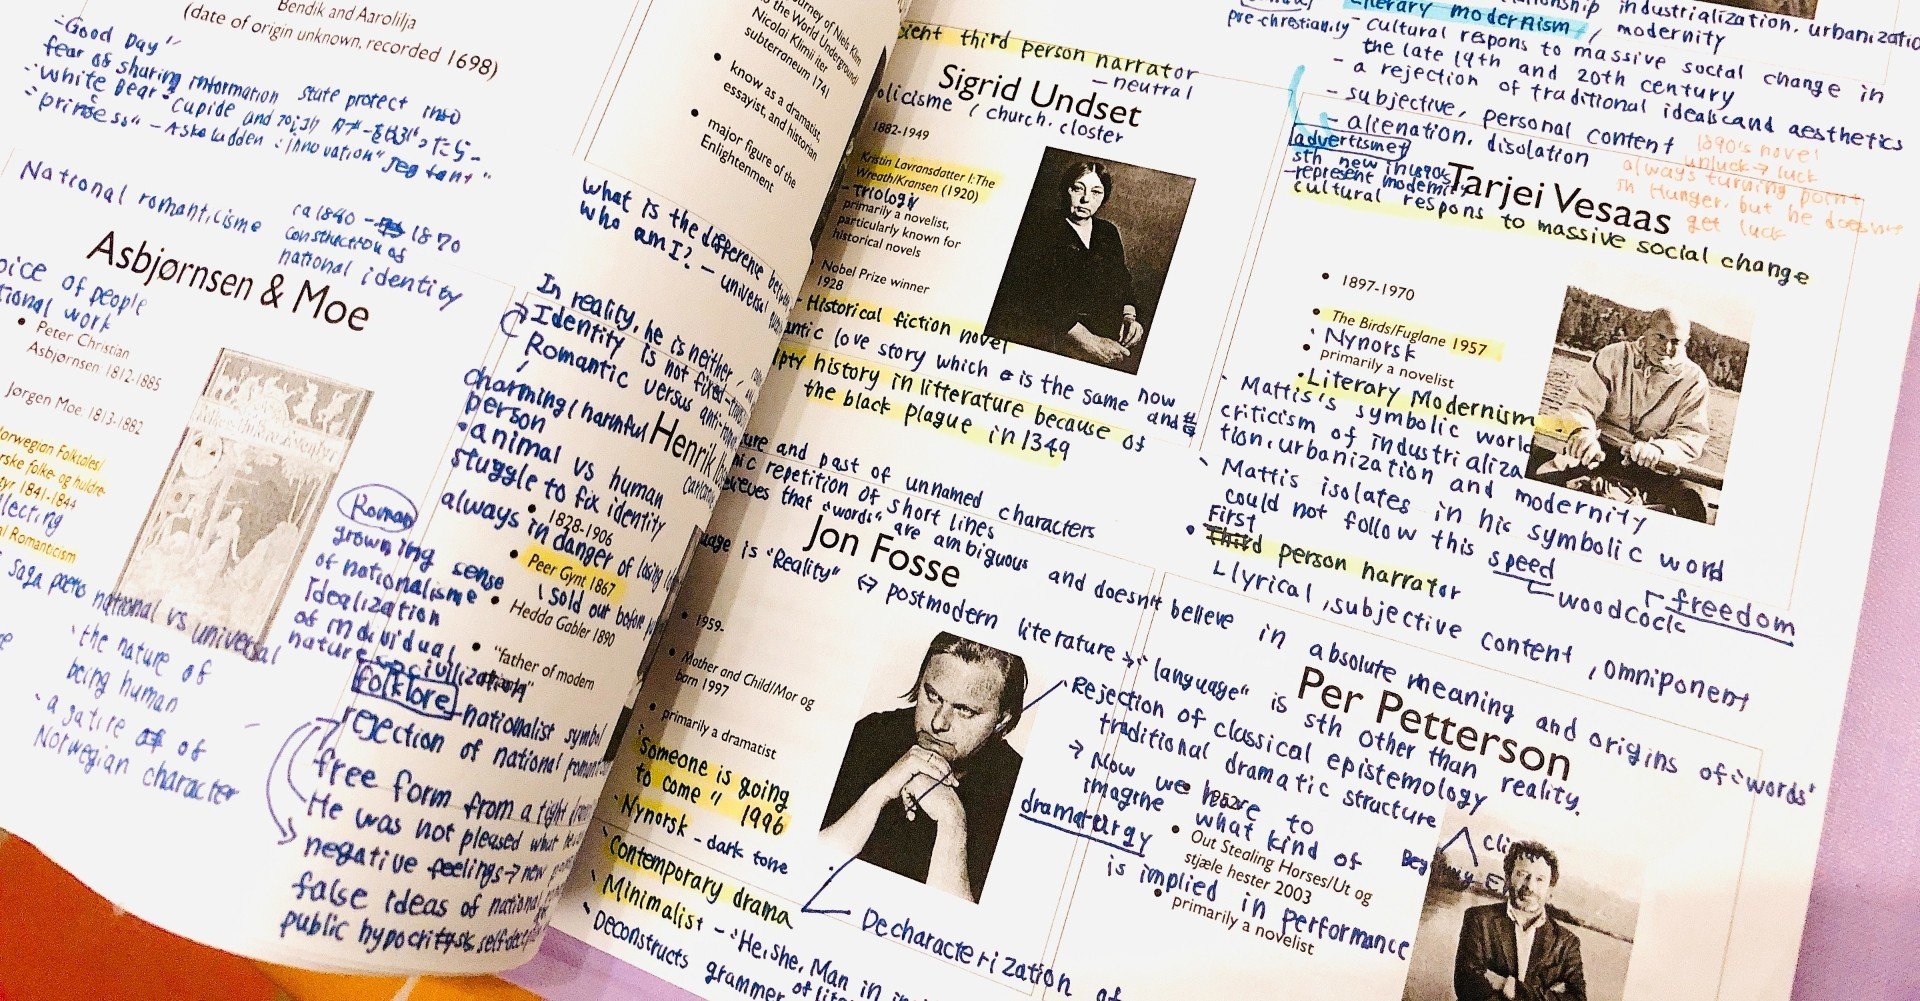 Bendik and Aarolilja
(date of origin unknown, recorded 1698)
"Good Day"
fear of sharing information state protect into
"White Bear" cupide and
"princess" - Askeladden : innovation "jeg fant"
National romanticisme
ca 1840 - 1870
construction of
national identity
Asbjørnsen & Moe
oice of people
tional work
• Peter Christian
Asbjørnsen 1812-1885
Jørgen Moe 1813-1882
orwegian Folktales/
rske folke- og huldre-
tyr 1841-1844
llecting
al Romanticism
saga poems national vs universal
the nature of
being human
a satire of of
Norwegian character
Roman
growning sense
of nationalisme
Idealization
of individual
nature
folklore - nationalist symbol
rejection of national
free form from a tight
He was not pleased what he
negative feelings → new
false ideas of national
public hypocri
what is the difference
who am I? - universal
In reality, he is neither,
→ Identity is not fixed
Romantic versus anti-
charming/harmful
person
Henrik
• animal vs human
stuggle to fix identity
• 1828-1906
always in danger of losing
• Peer Gynt 1867
sold out before
• Hedda Gabler 1890
• "father of modern
ourney of Niels Klim
to the World Underground/
Nicolai Klimii iter
subterraneum 1741
• know as a dramatist,
essayist, and historian
• major figure of the
Enlightenment
cient third person narrator
- neutral
Sigrid Undset
olicisme / church. closter
1882-1949
Kristin Lavransdatter I: The
Wreath/Kransen (1920)
- Triology
primarily a novelist,
particularly known for
historical novels
Nobel Prize winner
1928
- Historical fiction novel
antic love story which is the same now
and
pty history in litterature because of
the black plague in 1349
ure and past of unnamed characters
ic repetition of short lines
eves that "words" are ambiguous and doesn't believe in absolute meaning and origins of "words"
Jon Fosse
uage is "Reality" ↔ postmodern literature → "language" is sth other than reality.
• 1959-
• Mother and Child/Mor og
barn 1997
• primarily a dramatist
"Someone is going
to come" 1996
Nynorsk - dark tone
Contemporary drama
Minimalist - "He, She, Man in
Deconstructs grammer of
Decharacterization of
Rejection of classical epistemology
traditional dramatic structure
→ Now we have to
imagine what kind of
dramaturgy
is implied in performance
pre-chrestianity
Literary modernism / modernity
industrialization, urbanizatio
- cultural respons to massive social change in
the late 19th and 20th century
- a rejection of traditional ideals and aesthetics
- subjective, personal content
- alienation, disolation
advertismet
sth new in 1890s
- represent modernity
1890's novel
unluck → luck
always turning point
in Hunger, but he doesn't
get luck
Tarjei Vesaas
cultural respons to massive social change
• 1897-1970
• The Birds/Fuglane 1957
Nynorsk
• primarily a novelist
• Literary Modernism
Mattis's symbolic world
criticism of industrializa
tion, urbanization and modernity
Mattis isolates in his symbolic word
could not follow this speed
First
• Third person narrator
woodcock
freedom
Llyrical, subjective content, omniponent
Per Petterson
• 1952-
• Out Stealing Horses/Ut og
stjæle hester 2003
• primarily a novelist